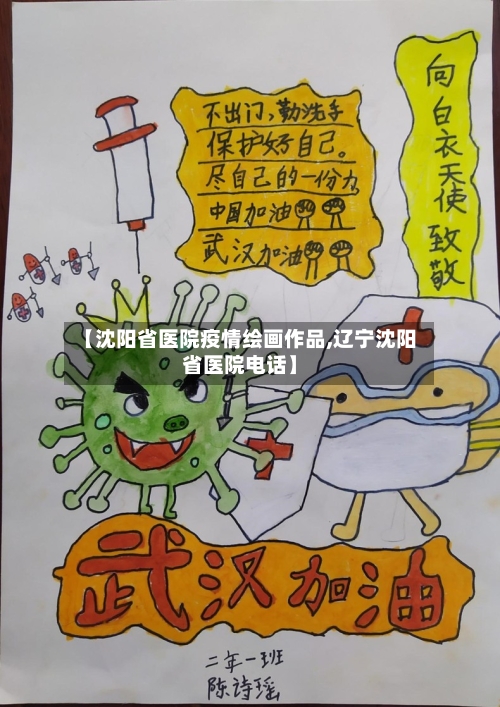 不出门,勤洗手
保护好自己。
尽自己的一份力,
中国加油
武汉加油
向白衣天使致敬
【沈阳省医院疫情绘画作品,辽宁沈阳
省医院电话】
武汉加油
二年一班
陈诗瑶